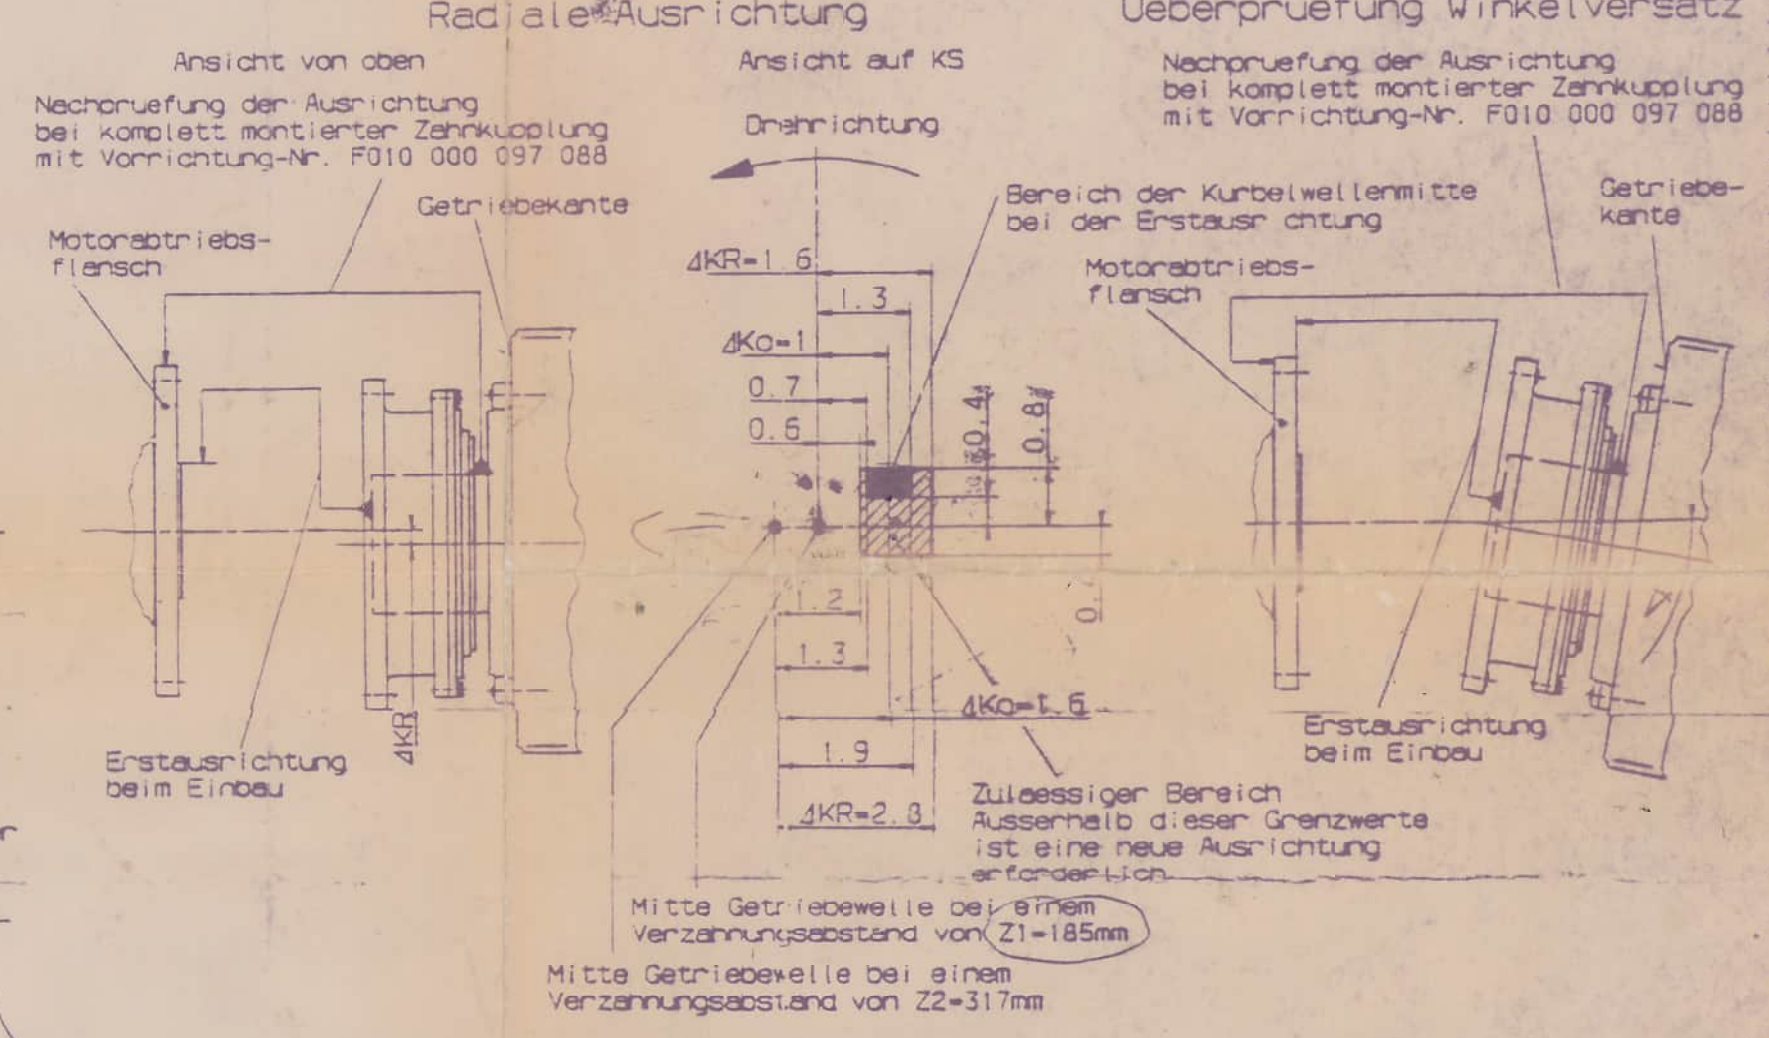 Radiale Ausrichtung
Ansicht von oben
Nachpruefung der Ausrichtung
bei komplett montierter Zahnkupplung
mit Vorrichtung-Nr. F010 000 097 088
Getriebekante
Motorabtriebs-
flansch
ΔKR
Erstausrichtung
beim Einbau
Ansicht auf KS
Drehrichtung
Bereich der Kurbelwellenmitte
bei der Erstausr chtung
ΔKR=1.6
1.3
ΔKo=1
0.7
0.6
0.4
0.8
1.2
1.3
ΔKo=1.6
1.9
ΔKR=2.8
Zulaessiger Bereich
Ausserhalb dieser Grenzwerte
ist eine neue Ausrichtung
erforderlich
Mitte Getriebewelle bei einem
Verzahnungsabstand von Z1=185mm
Mitte Getriebewelle bei einem
Verzahnungsabstand von Z2=317mm
Ueberpruefung Winkelversatz
Nachpruefung der Ausrichtung
bei komplett montierter Zahnkupplung
mit Vorrichtung-Nr. F010 000 097 088
Getriebe-
kante
Motorabtriebs-
flansch
Erstausrichtung
beim Einbau